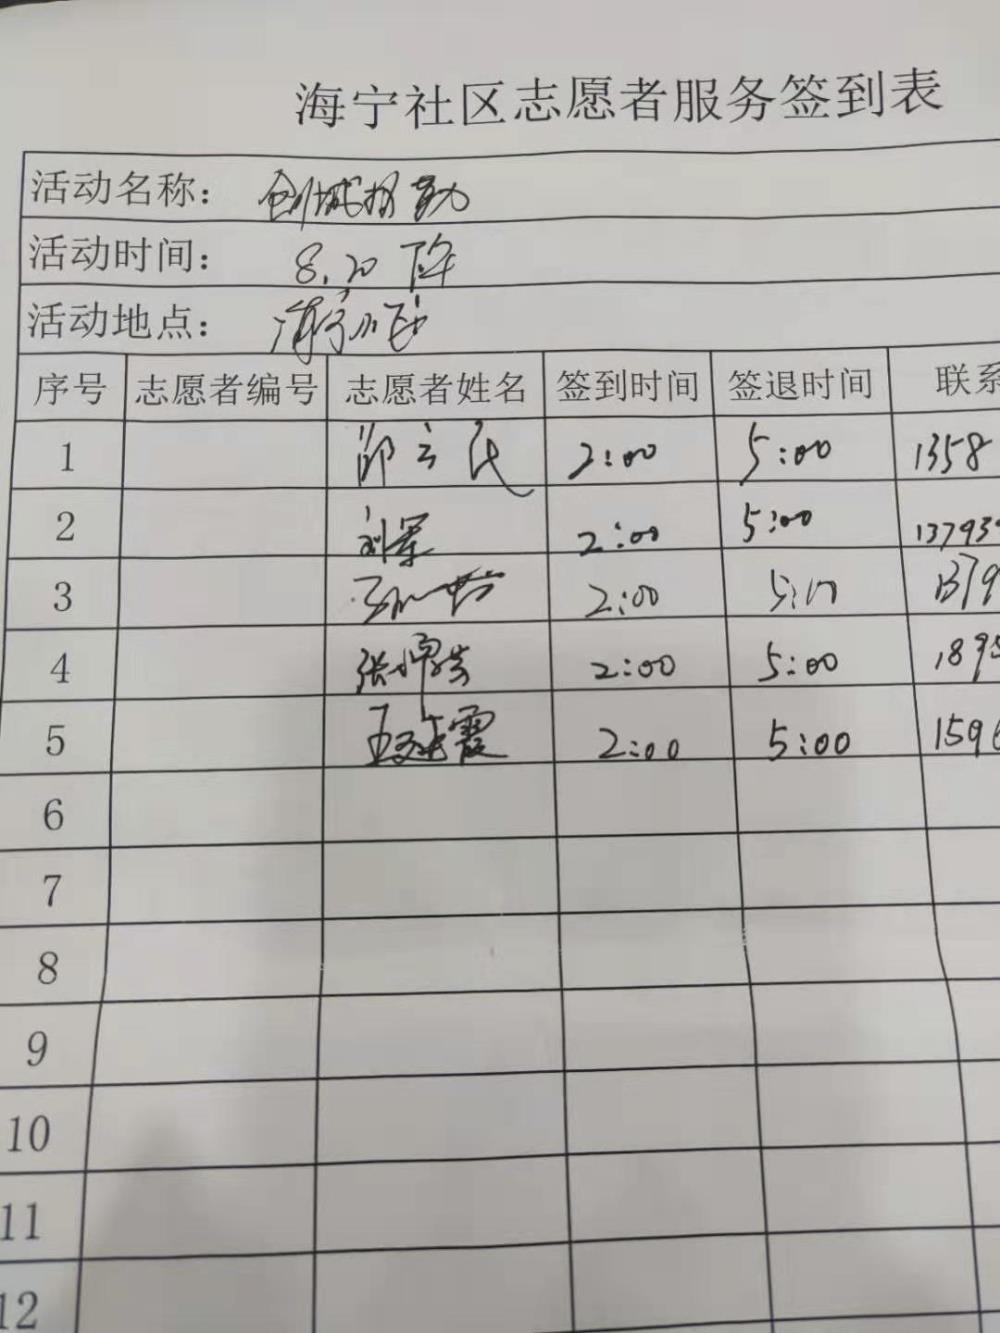 海宁社区志愿者服务签到表
活动名称： 创城执勤
活动时间： 8.20 下午
活动地点： 海宁小区
序号 志愿者编号 志愿者姓名 签到时间 签退时间 联系
1 邵云民 2:00 5:00 1358
2 刘军 2:00 5:00 13793
3 2:00 5:00 1379
4 张 2:00 5:00 1895
5 王建霞 2:00 5:00 1596
6
7
8
9
10
11
12